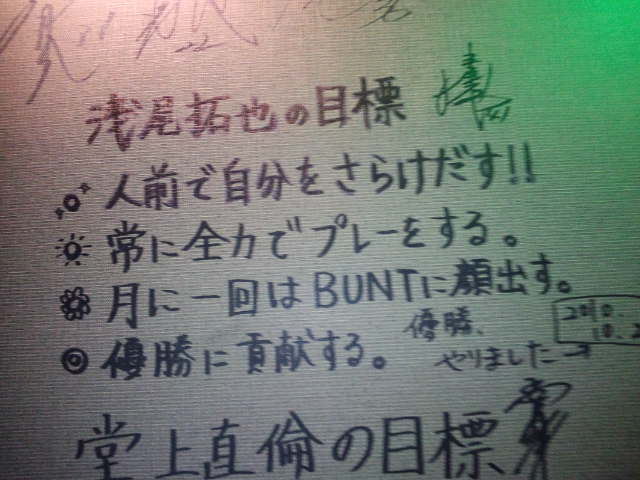 浅尾拓也の目標
人前で自分をさらけだす!!
常に全力でプレーをする。
月に一回はBUNTに顔出す。
優勝に貢献する。
優勝、
やりました
2010.
堂上直倫の目標